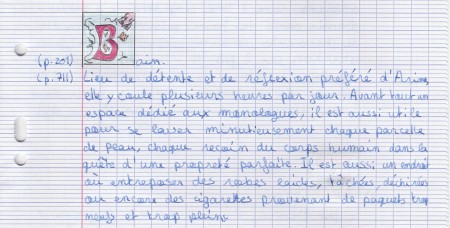 (p.201) Bain.
(p.711) Lieu de détente et de réflexion préféré d'Ariane,
elle y coule plusieurs heures par jour. Avant tout un
espace dédié aux monologues, il est aussi utile
pour se laver minutieusement chaque parcelle
de peau, chaque recoin du corps humain dans la
quête d'une propreté parfaite. Il est aussi un endroit
où entreposer des robes laides, tâchées, déchirées
ou encore des cigarettes provenant de paquets trop
neufs et trop pleins.